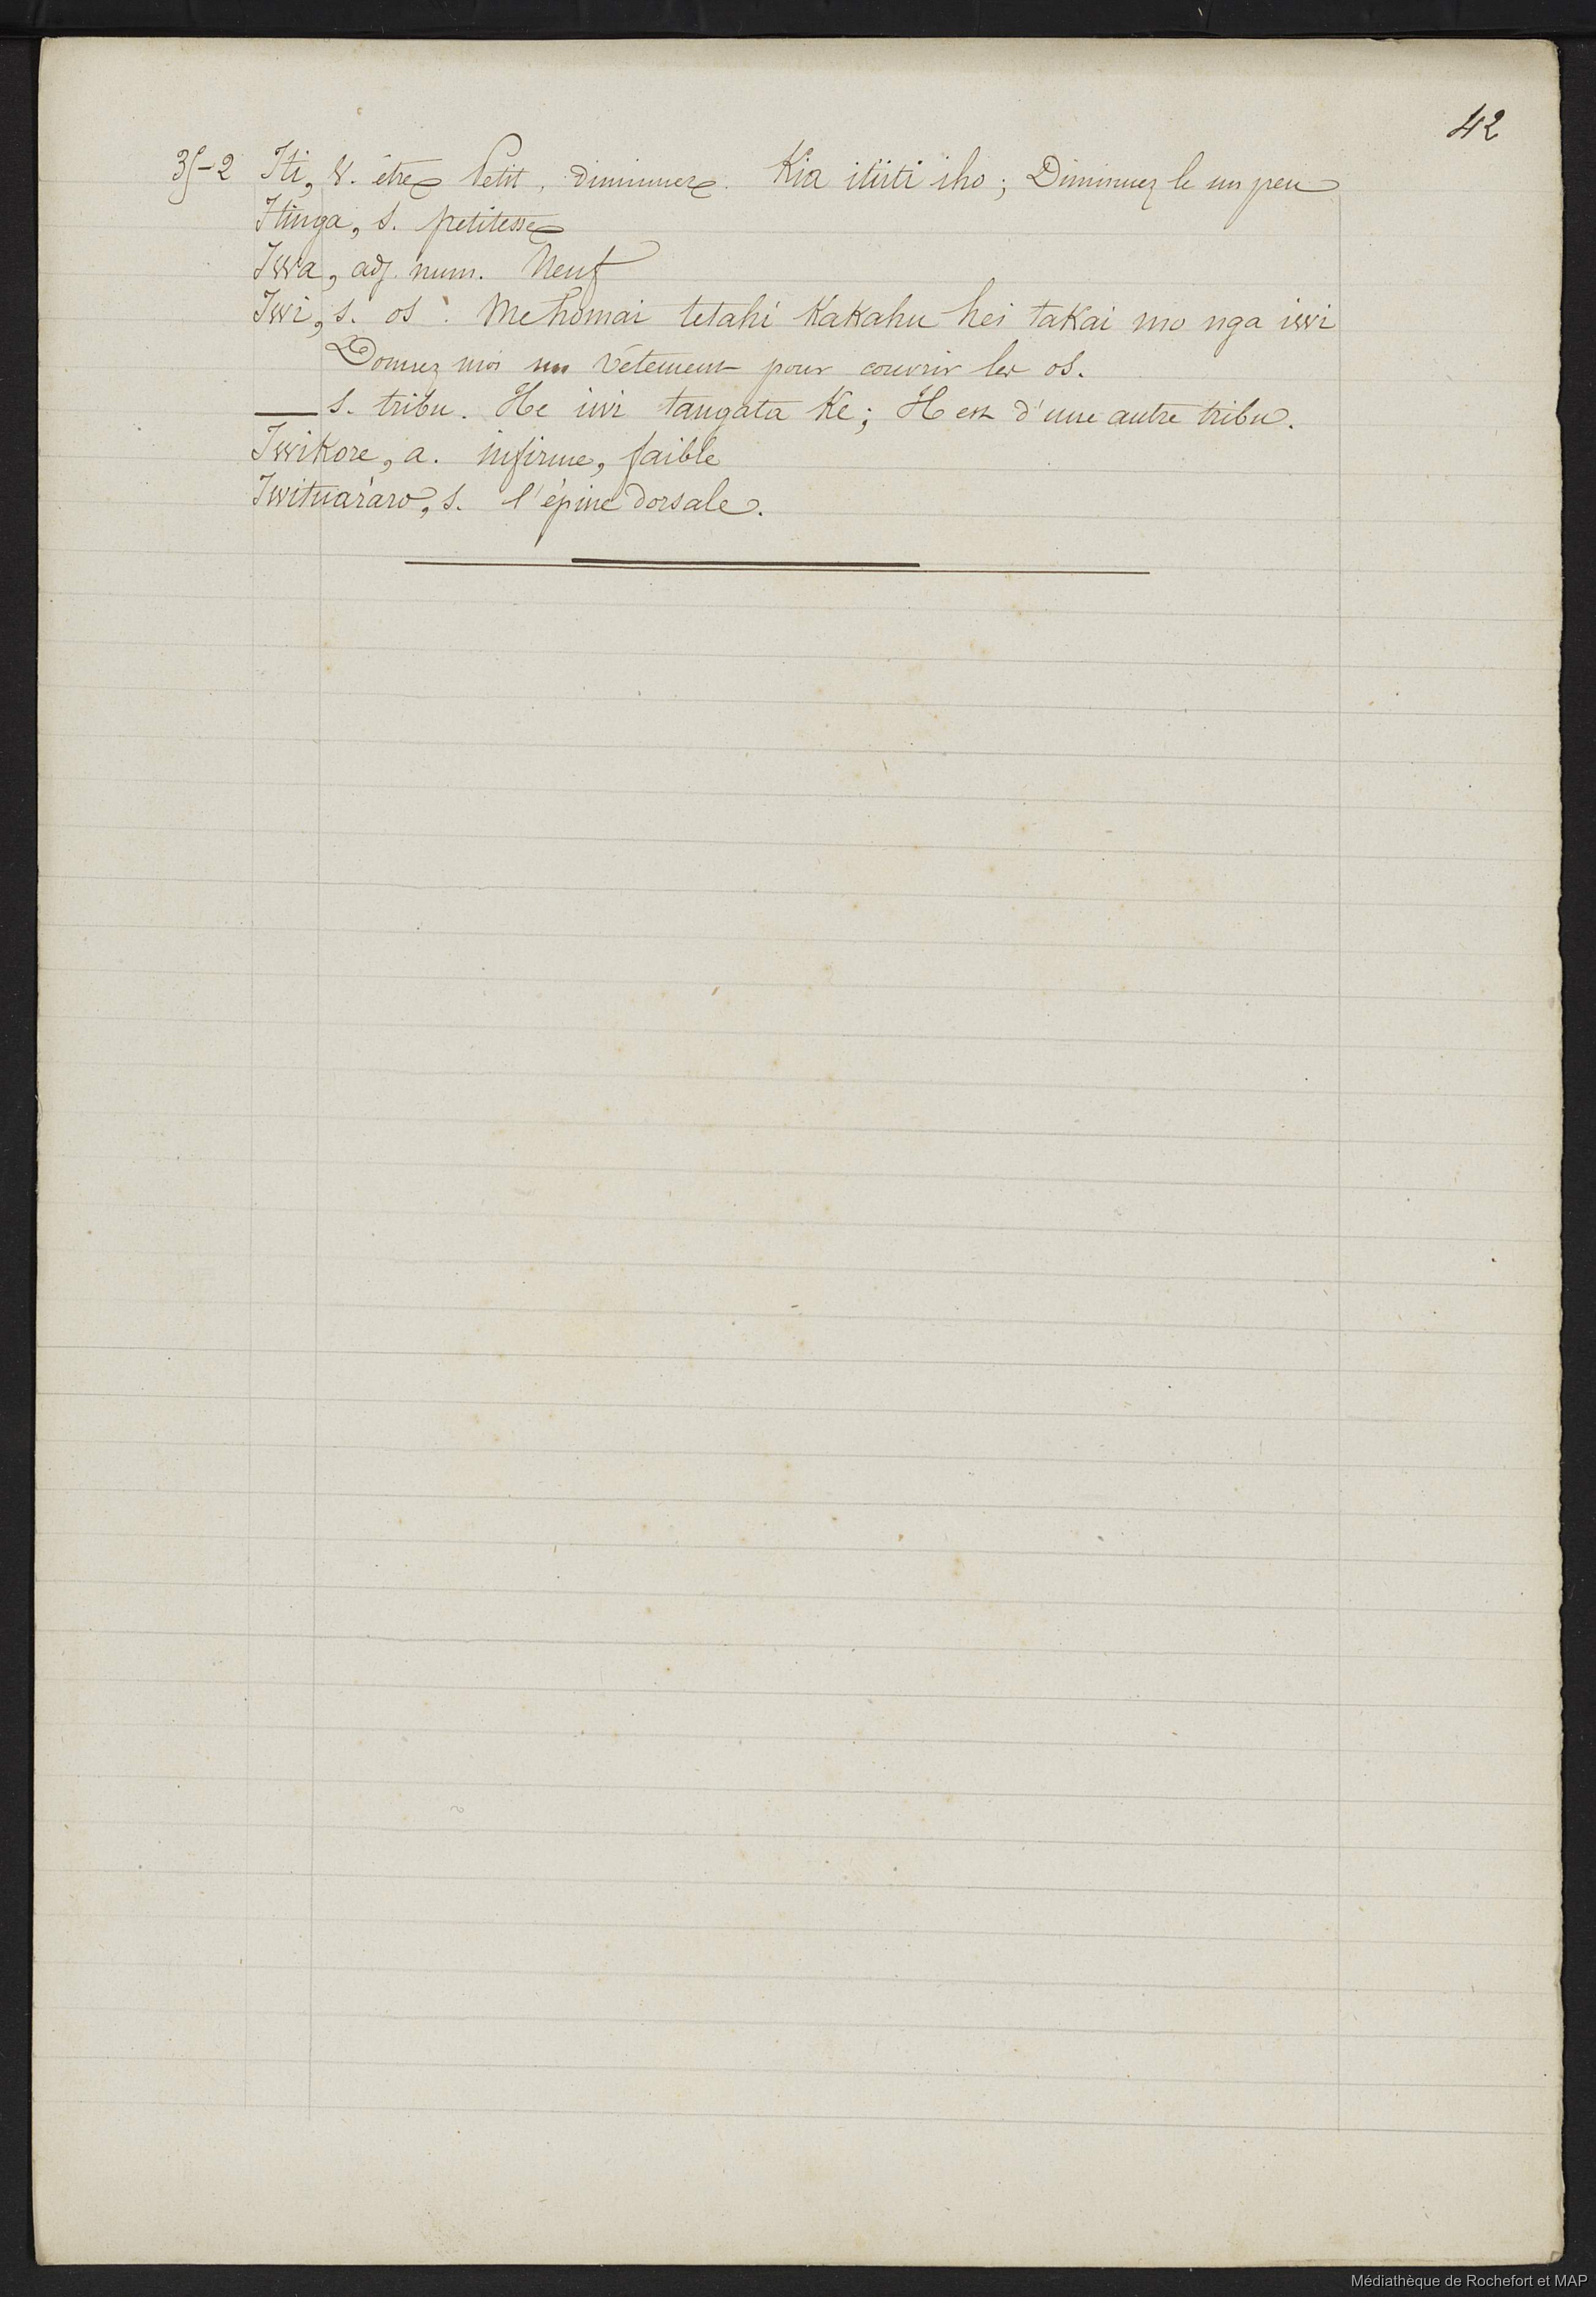 42
35-2 Iti, V. être Petit, diminuer. Kia itiiti iho; Diminuez le un peu
Itinga, s. petitesse
Iwa, adj. num. Neuf
Iwi, s. os. Me homai tetahi Kakahu hei takai mo nga iwi
Donnez moi un vêtement pour couvrir les os.
— s. tribu. He iwi tangata Ke; Il est d'une autre tribu.
Iwikore, a. infirme, faible
Iwituararo, s. l'épine dorsale.
Médiathèque de Rochefort et MAP